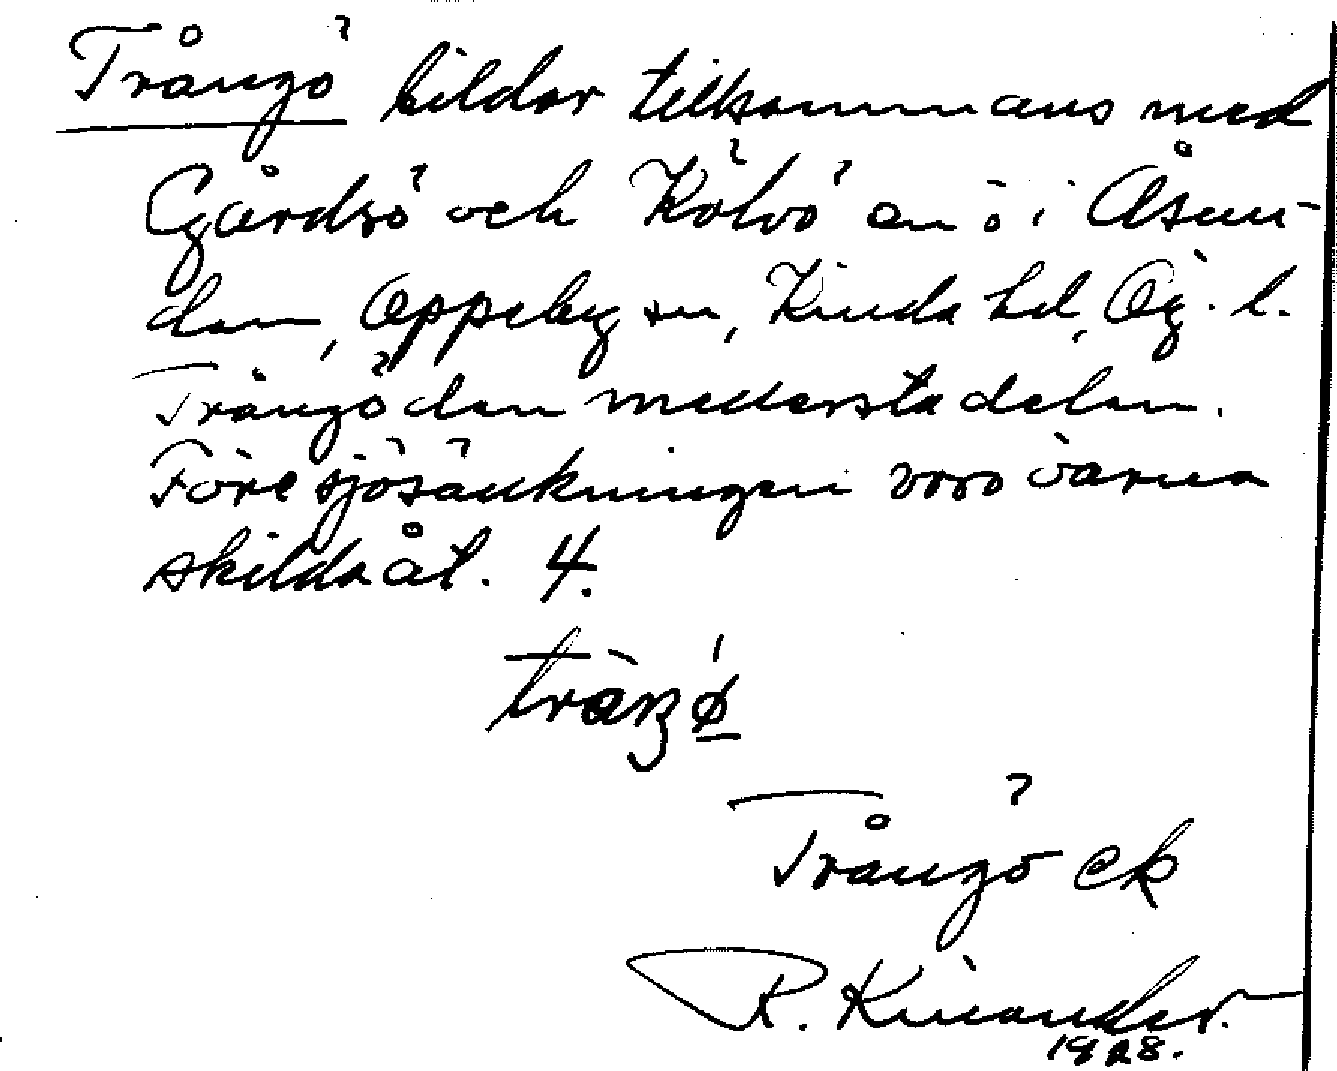 Trångö bildar tillsammans med
Gårdsö och Kölvö en ö i Åsun-
den, Oppeby sn, Kinda hd, Ög. l.
Trångö den mellersta delen.
Före sjösänkningen voro öarna
skilda åt. 4.
Trångö ek
R. Kinander.
1928.